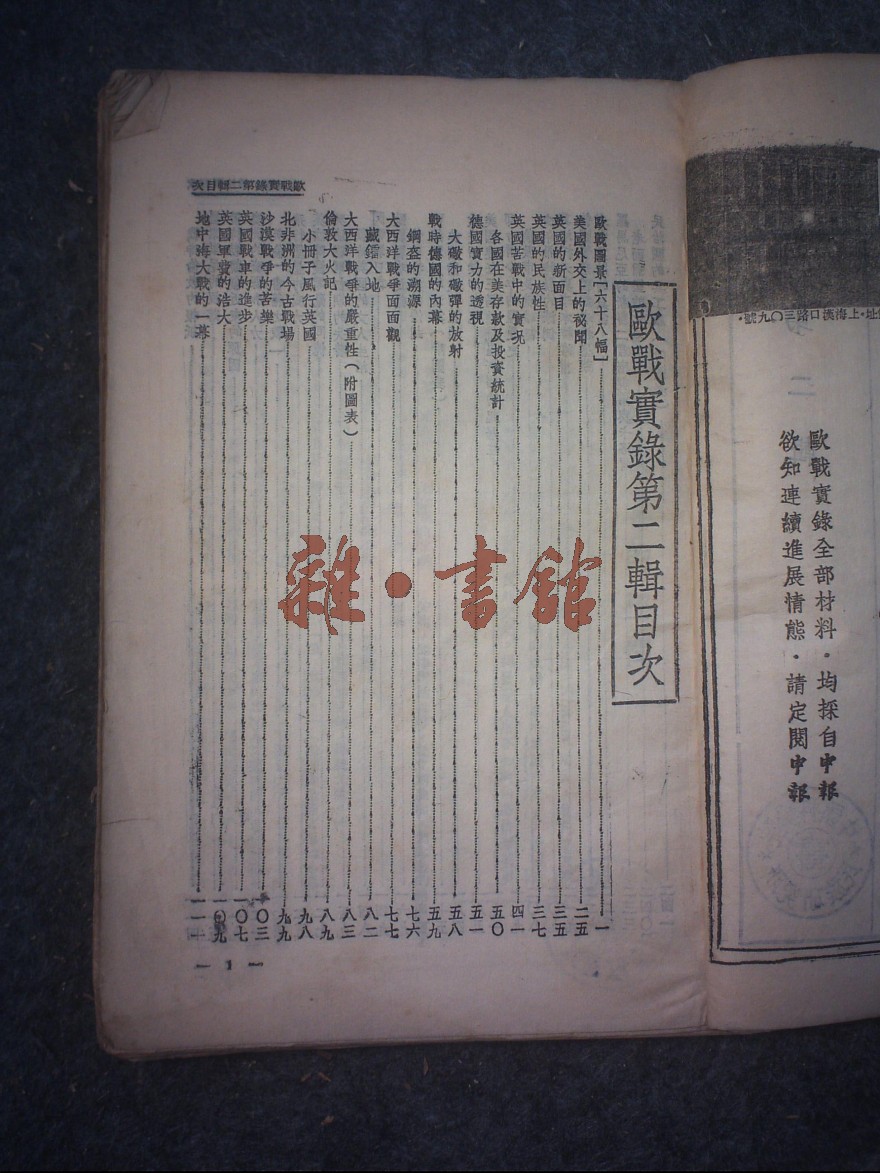 址·上海漢口路三〇九號·
歐戰實錄全部材料·均採自申報
欲知連續進展情態·請定閱申報
歐戰實錄第二輯目次
歐戰圖景[六十八幅]……一
美國外交上的秘聞……二五
英國的新面目……三五
英國的民族性……三七
英國苦戰中的實況……四一
各國在美存款及投資統計……五〇
德國實力的透視……五一
大礮和礮彈的放射……五八
戰時德國的內幕……五九
鋼盔的溯源……七六
大西洋戰爭面面觀……七七
藏鏹入地……八二
大西洋戰爭的嚴重性(附圖表)……八三
倫敦大火記……八九
小冊子風行英國……九八
北非洲的今古戰場……九九
沙漠戰爭的苦樂……一〇三
英國戰車的進步……一〇七
英國軍費的浩大……一〇九
地中海大戰的一幕……一一一
歐戰實錄第二輯目次
— 1 —
雜·書館